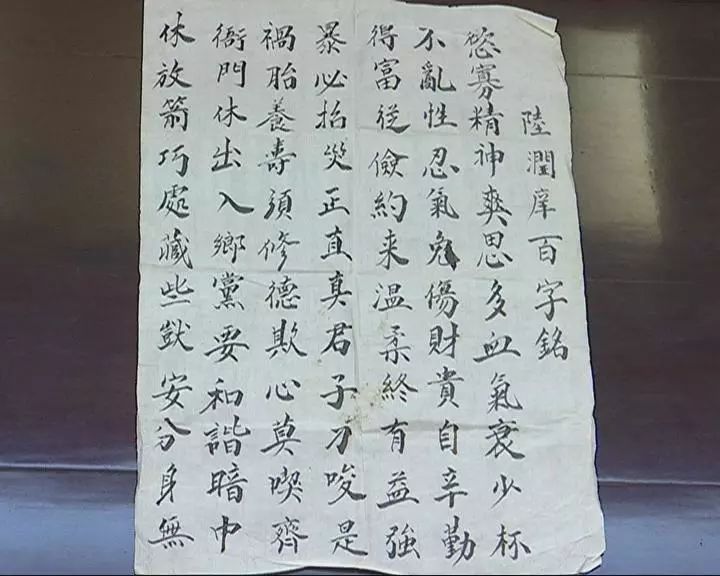 陸潤庠百字銘
慾寡精神爽思多血氣衰少杯
不亂性忍氣免傷財貴自辛勤
得富從儉約来温柔終有益強
暴必招災正直真君子刁唆是
禍胎養壽須修德欺心莫喫齊
衙門休出入鄉黨要和諧暗中
休放箭巧處藏些獃安分身無